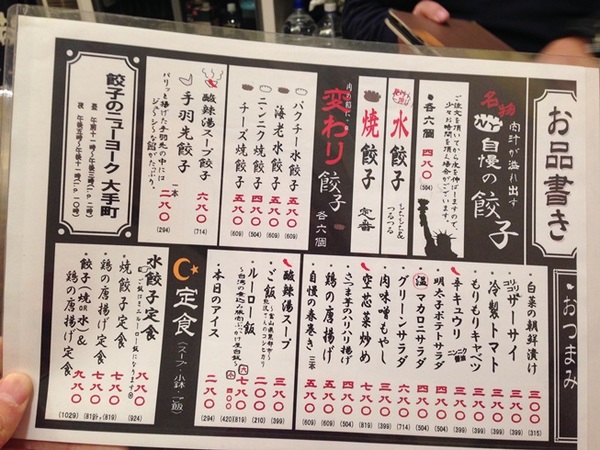 お品書き
名物
肉汁が溢れ出す
自慢の餃子
ご注文を頂いてから皮を伸ばしますので、
少々お時間を頂く場合がございます。
・各六個 四八〇 (504)
水餃子
焼餃子
定番
変わり餃子 各六個
パクチー水餃子 五八〇 (609)
海老水餃子 五八〇 (609)
ニンニク焼餃子 四八〇 (504)
チーズ焼餃子 五八〇 (609)
酸辣湯スープ餃子 六八〇 (714)
手羽先餃子 一本 二八〇 (294)
パリッと揚げた手羽先の中には
ジューシーな餡がたっぷり。
餃子のニューヨーク 大手町
昼 午前十一時〜午後三時
夜 午後五時〜午後十一時
・おつまみ
白菜の朝鮮漬け 三〇〇 (315)
コリコリザーサイ 三八〇 (399)
冷製トマト 三八〇 (399)
もりもりキャベツ 三八〇 (399)
辛キュウリ ニンニク醤油 四八〇 (504)
明太子ポテトサラダ 四八〇 (504)
温マカロニサラダ 四八〇 (504)
グリーンサラダ 六八〇 (714)
肉味噌もやし 四八〇
空芯菜炒め 七八〇 (819)
さつま芋のパリパリ揚げ 四八〇 (504)
鶏の唐揚げ 五八〇 (609)
自慢の春巻き 三本 五八〇 (609)
酸辣湯スープ 三八〇 (399)
ご飯 二〇〇 (210)
ルーロー飯 大 七八〇 小 四〇〇 (420) (819)
・本日のアイス 二八〇 (294)
定食
(スープ・小鉢・ご飯)
水餃子定食 八八〇 (924)
焼餃子定食 七八〇 (819)
・鶏の唐揚げ定食 七八〇 (819)
・餃子(焼or水)&
鶏の唐揚げ定食 九八〇 (1029)